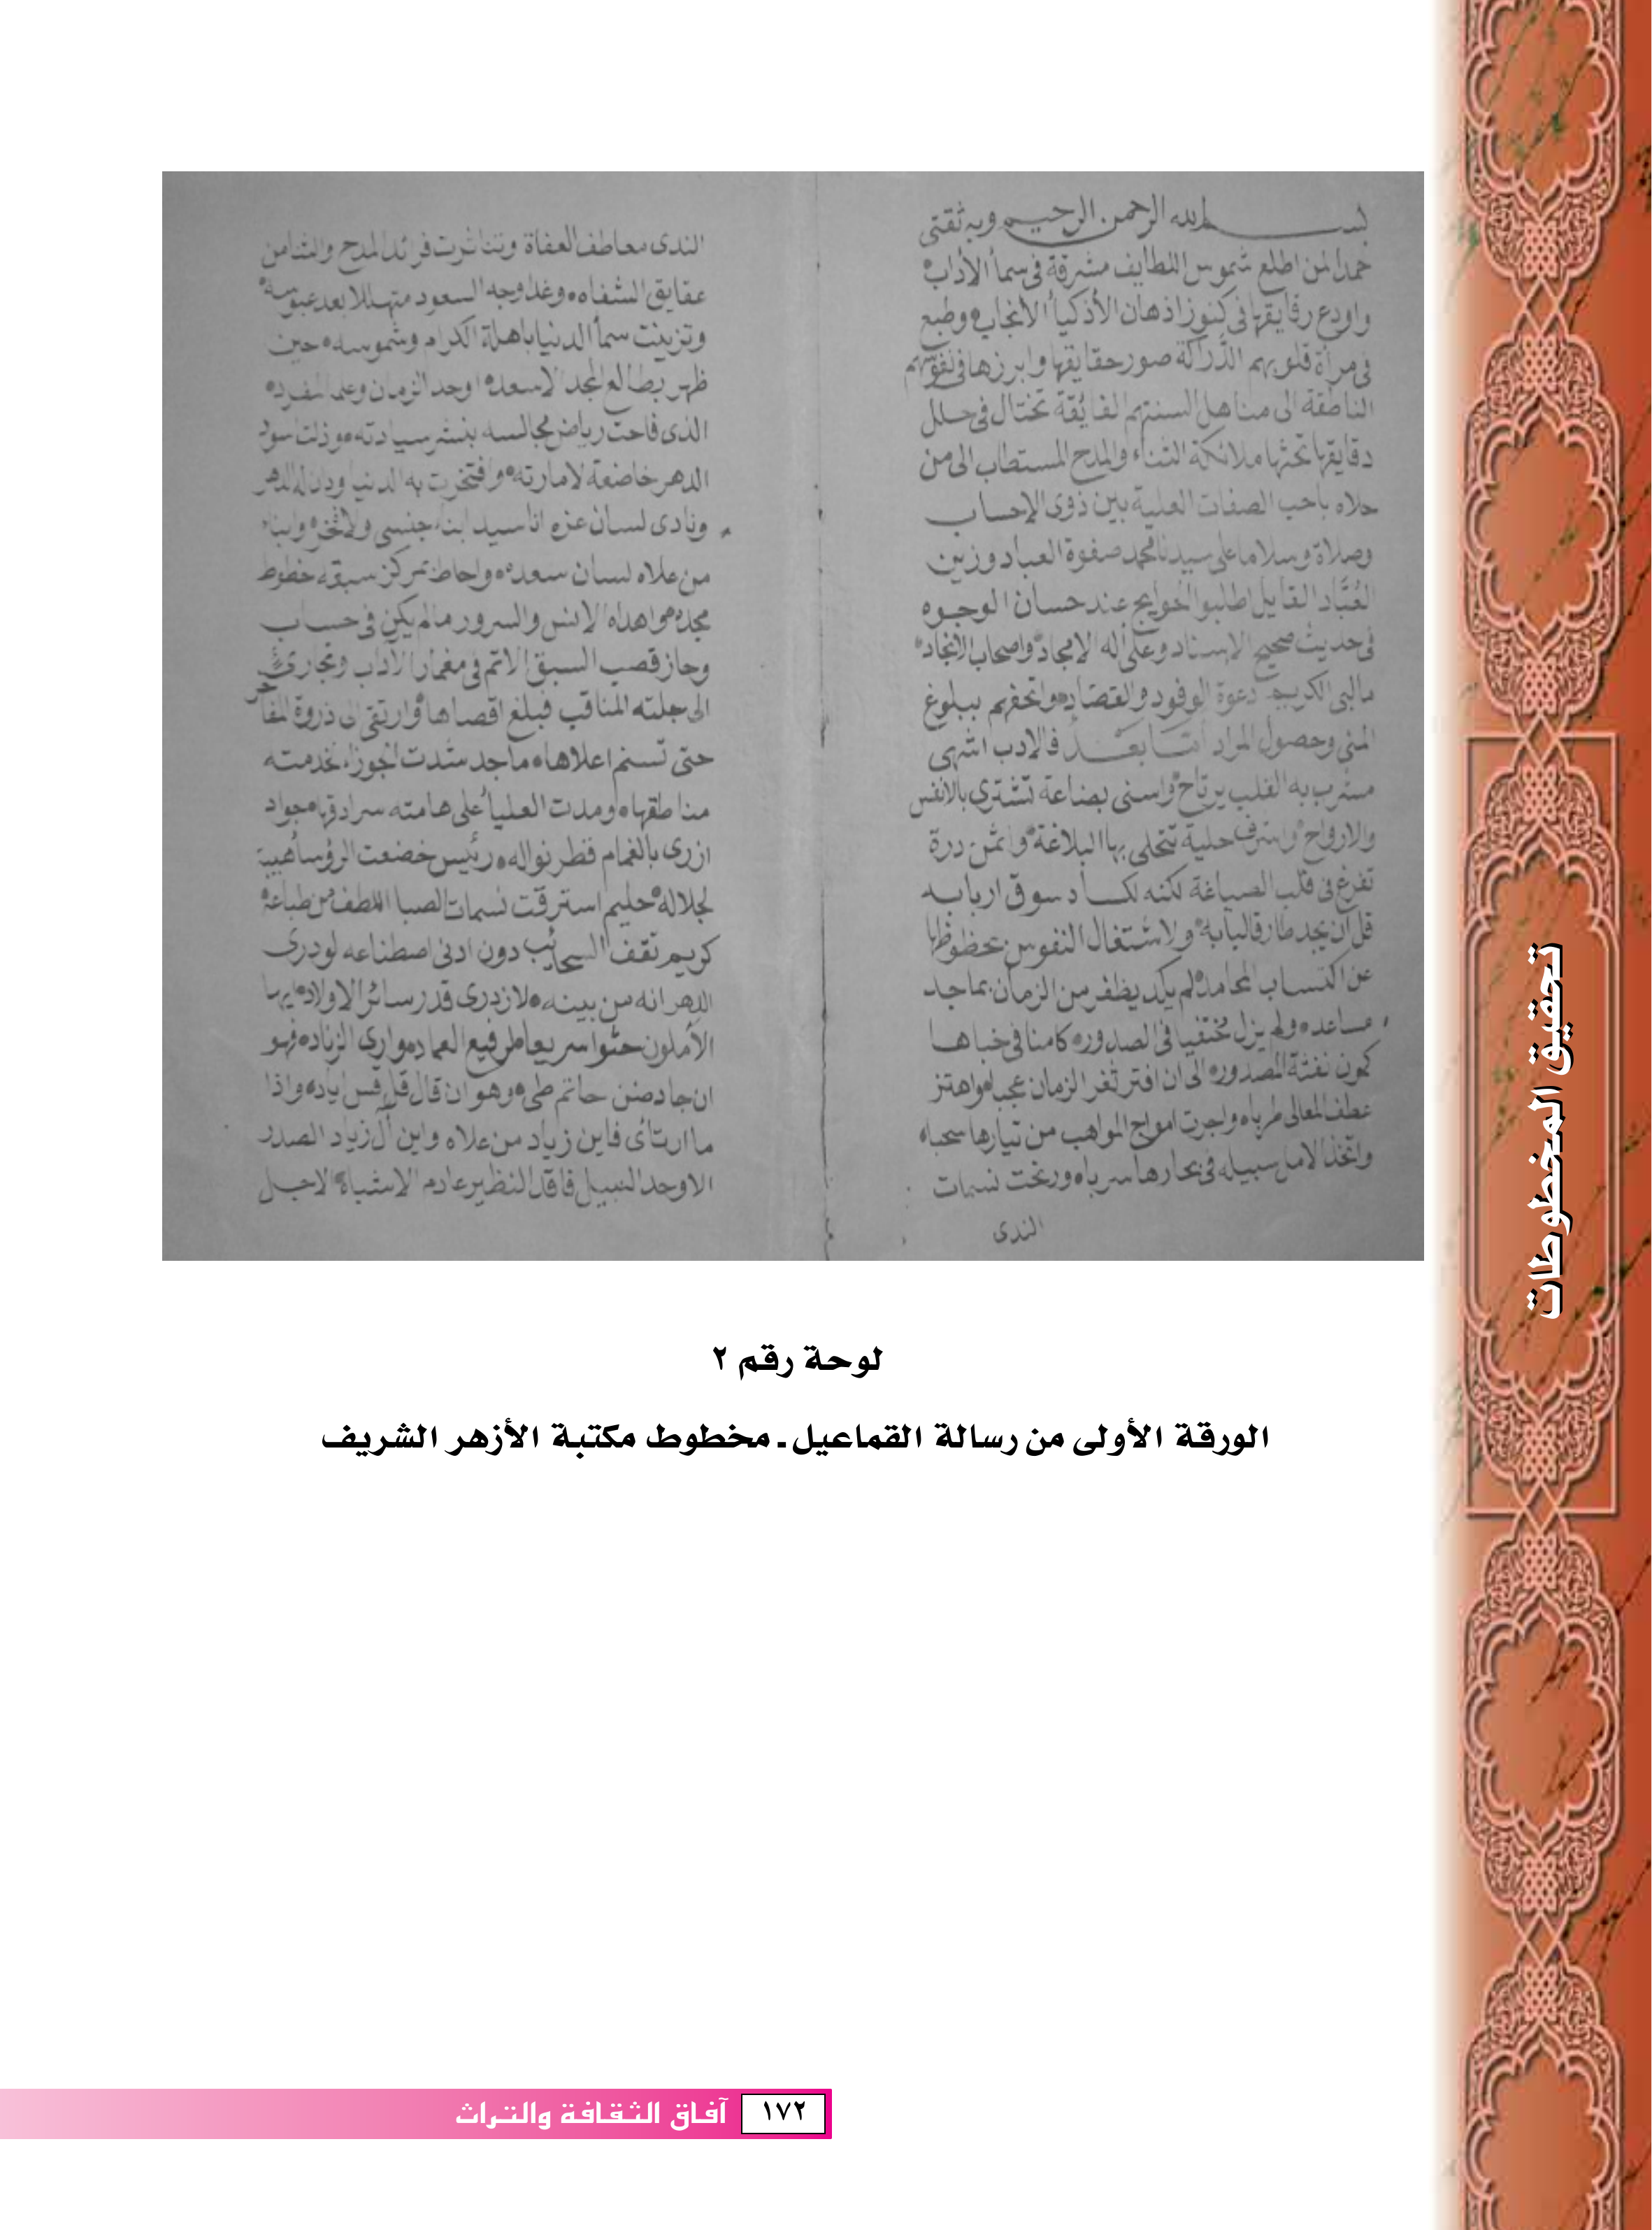 بسم الله الرحمن الرحيم وبه ثقتى
حمدا لمن اطلع شموس اللطايف مشرقة في سمأ الأداب
واودع رقايقها في كنوز اذهان الأذكيأ الأنجاب وطبع
في مرأة قلوبهم الدراكة صور حقايقها وابرزها في نفوسهم
الناطقة الى مناهل السنتهم الفايقة تختال في حلل
دقايقها تحثها ملائكة الثناء والمدح المستطاب الى من
حلاه باحب الصفات العلية بين ذوى الاحساب
وصلاة وسلاما على سيدنا محمد صفوة العباد وزين
العُبّاد القايل اطلبوا الحوايج عند حسان الوجوه
في حديث صحيح الاسناد وعلى أله الامجاد واصحاب الانجاد
مالبى الكريم دعوة الوفود والقصاد واتحفهم ببلوغ
المنى وحصول المراد امّا بعد فالادب اشهى
مشرب به القلب يرتاح واسنى بضاعة تشترى بالانفس
والارواح واشرف حلية تتحلى بها البلاغة واثمن درة
تفرغ في قلب الصياغة لكنه لكساد سوق اربابه
قل أن يجد طارقا لبابه ولاشتغال النفوس بحظوظها
عن اكتساب المحامد لم يكد يظفر من الزمان بماجد
مساعد ولم يزل مختفيا في الصدور كامنا في خباها
كمون نفثة المصدور الى ان افتر ثغر الزمان عجبا واهتز
عطف المعالى طربا واجرت امواج المواهب من تيارها سحبا
واتخذ الامل سبيله في بحارها سربا ورنحت نسمات
الندى
الندى معاطف العفاة وتناثرت فرائد المدح والثنا من
عقايق الشفاه وغدا وجه السعود متهللا بعد عبوسه
وتزينت سمأ الدنيا باهلة الكرام وشموسه حين
ظهر بطالع المجد الاسعد اوحد الزمان وعلمه المفرد
الذى فاحت رياض مجالسه بنشر سيادته وذلت اسود
الدهر خاضعة لامارته وافتخرت به الدنيا ودان له الدهر
ونادى لسان عزه انا سيد ابناء جنسى ولا فخر وابناء
من علاه لسان سعده واحاط بمركز سبقه خطوط
مجده واهداه الانس والسرور مالم يكن في حساب
وحاز قصب السبق الاتم في مضمار الآداب وتجارى
الى جلته المناقب فبلغ اقصاها وارتقى الى ذروة المفاخر
حتى تسنم اعلاها ماجد شدت الجوزاء لخدمته
مناطقها ومدت العليأ على هامته سرادقها جواد
ازرى بالغمام قطر نواله رئيس خضعت الرؤسأ هيبة
لجلاله حليم استرقت نسمات الصبا اللطف من طباعه
كريم تقف السحائب دون ادنى اصطناعه لو درى
الدهر انه من بنيه لازدرى قدر سائر الاولاد ايها
الأملون حثوا سريعا طر فيع العماد وارى الزناد فهو
ان جاد ضن حاتم طى وهو ان قال قل قس اياد واذا
ما ارتأى فاين زياد من علاه واين آل زياد الصدر
الاوحد النبيل فاقد النظير عادم الاشباه الاجل
لوحة رقم ٢
الورقة الأولى من رسالة القماعيل ـ مخطوط مكتبة الأزهر الشريف
تحقيق المخطوطات
١٧٢ آفاق الثقافة والتراث